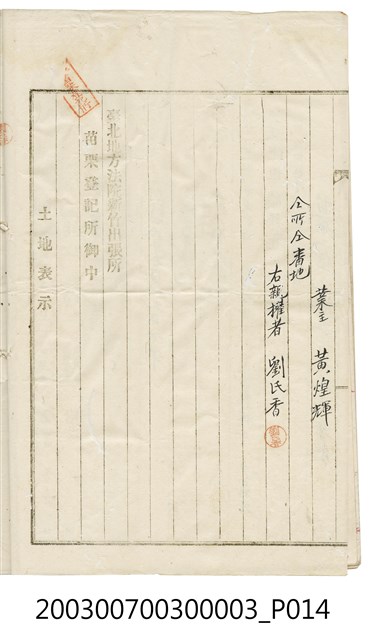 業主 黃煌輝
仝所仝番地
右親權者 劉氏香
臺北地方法院新竹出張所
苗栗登記所御中
土地表示
200300700300003_P014